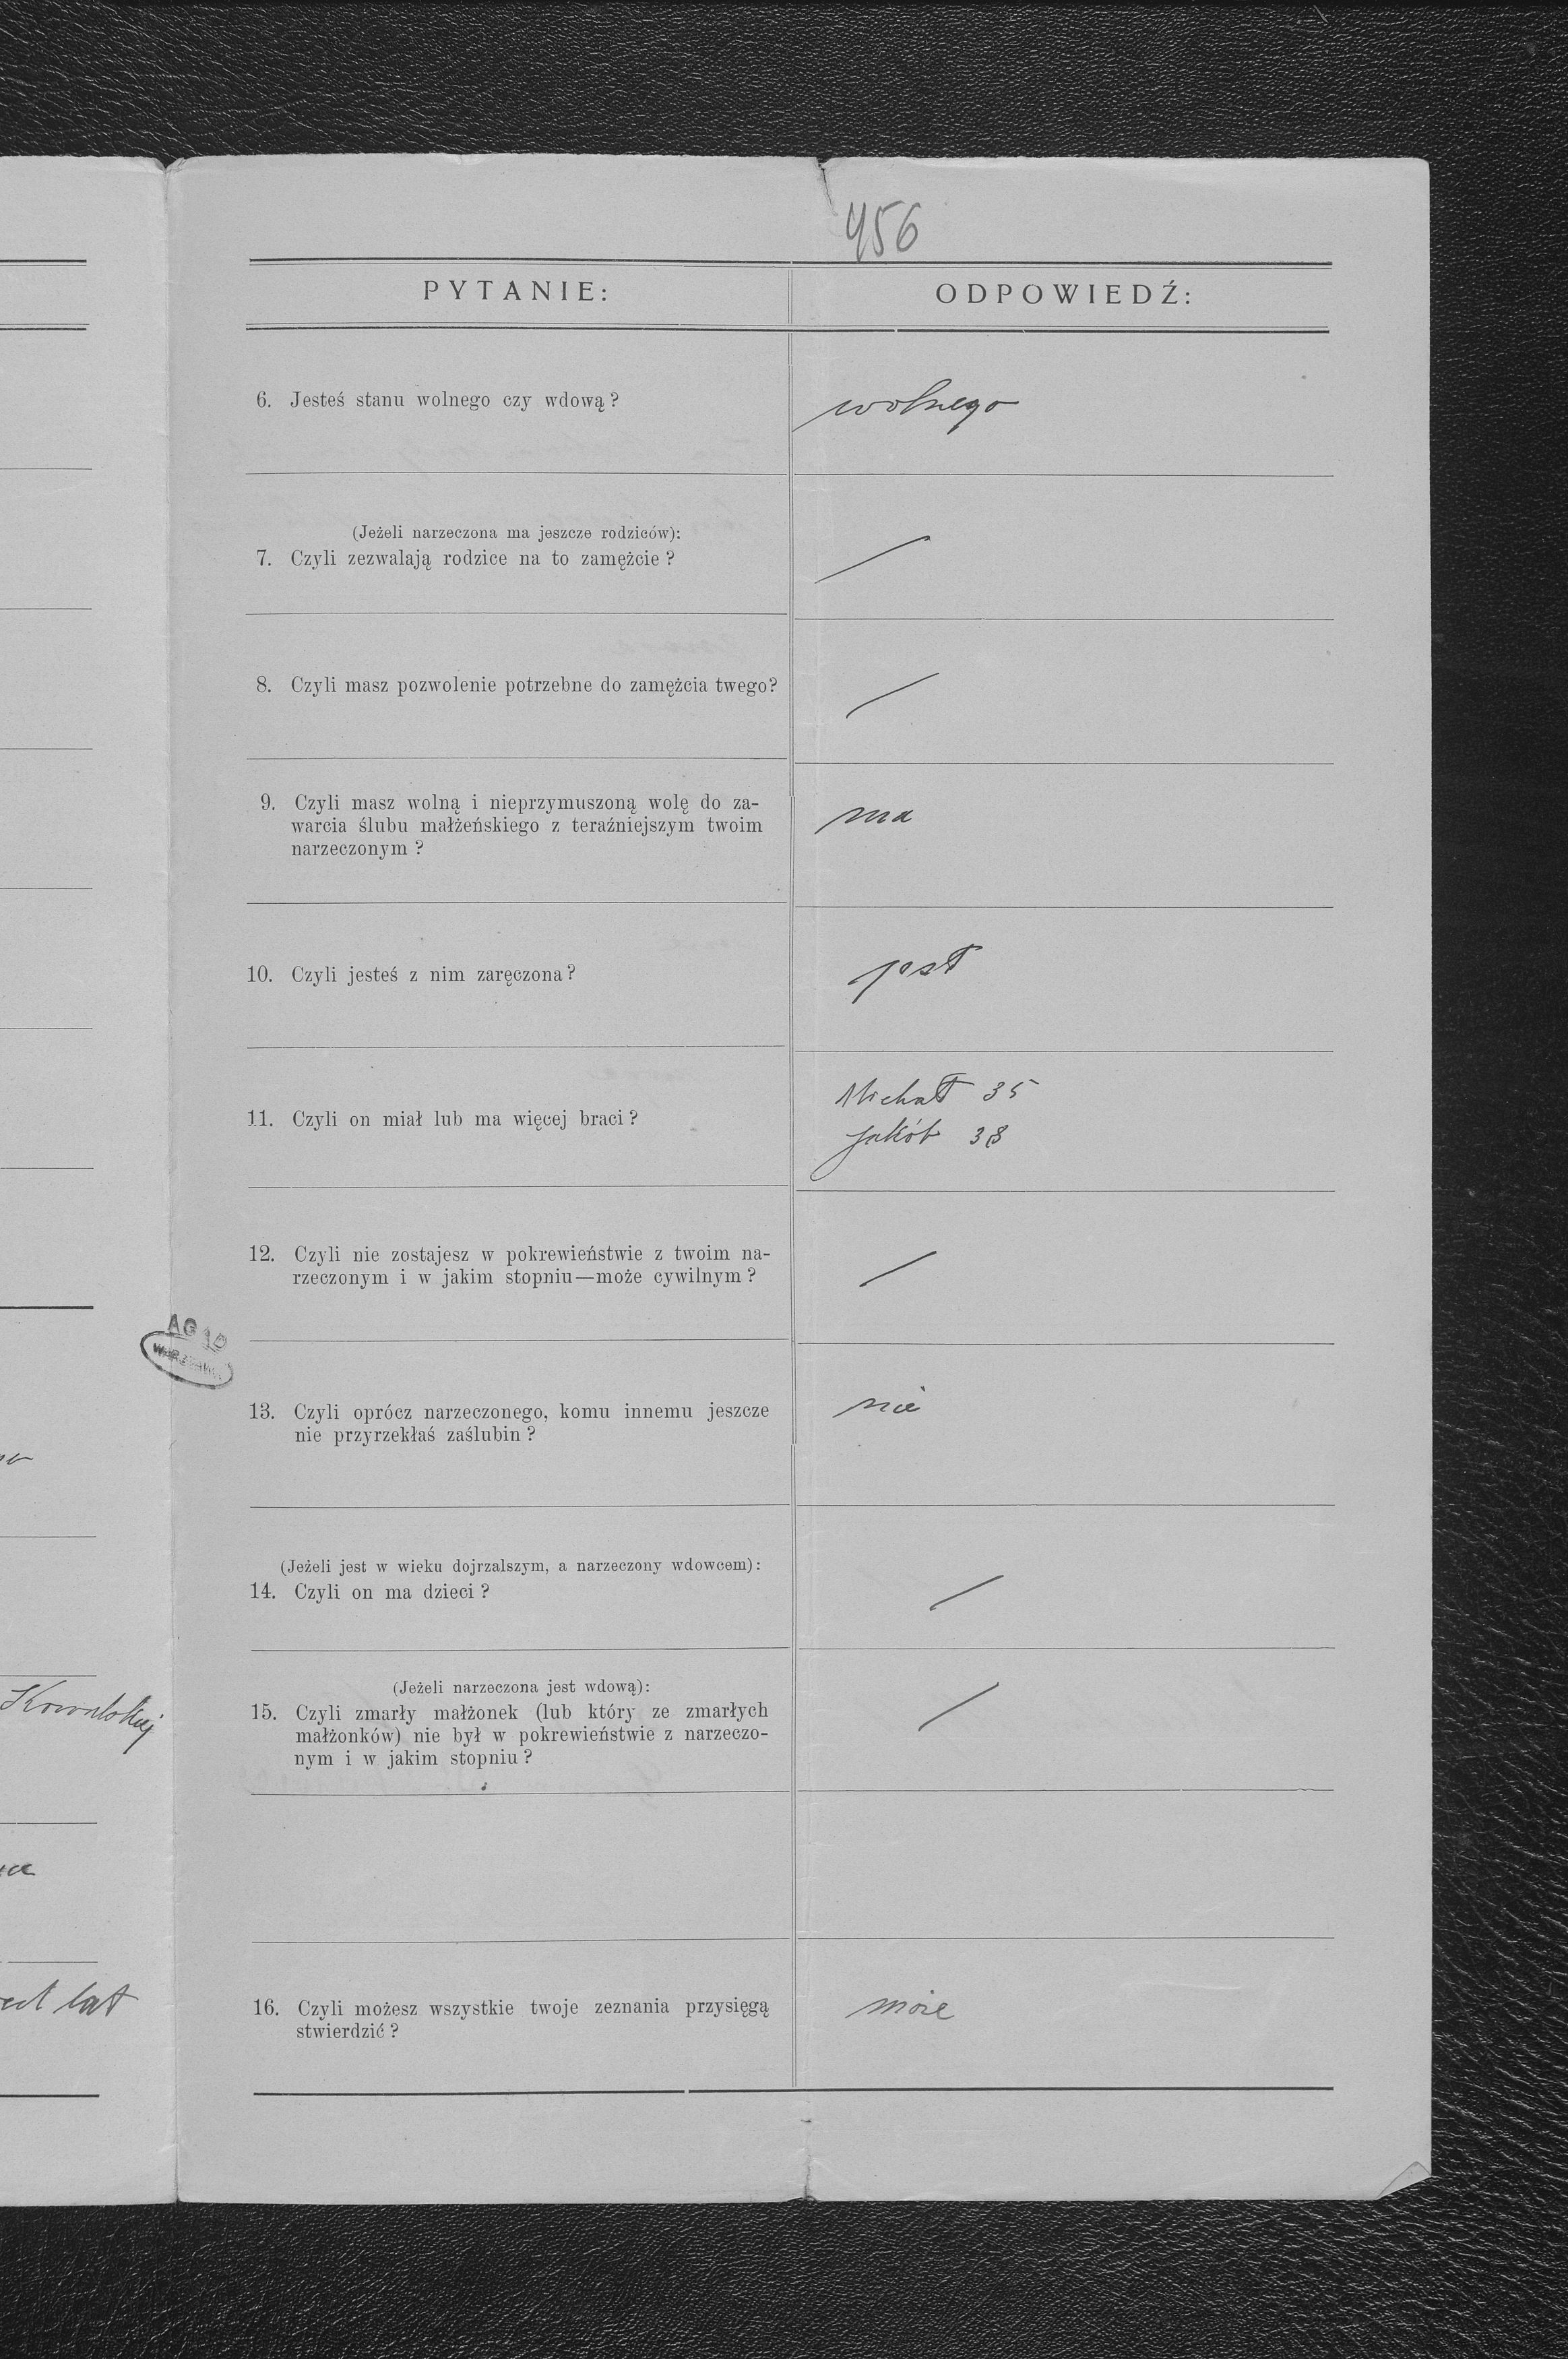 456
PYTANIE: ODPOWIEDŹ:
6. Jesteś stanu wolnego czy wdową? wolnego
(Jeżeli narzeczona ma jeszcze rodziców):
7. Czyli zezwalają rodzice na to zamężcie? /
8. Czyli masz pozwolenie potrzebne do zamężcia twego? /
9. Czyli masz wolną i nieprzymuszoną wolę do za-
warcia ślubu małżeńskiego z teraźniejszym twoim
narzeczonym?
ma
10. Czyli jesteś z nim zaręczona? jest
11. Czyli on miał lub ma więcej braci?
Michał 35
Jakób 38
12. Czyli nie zostajesz w pokrewieństwie z twoim na-
rzeczonym i w jakim stopniu—może cywilnym?
/
AGAD
WARSZAWA
13. Czyli oprócz narzeczonego, komu innemu jeszcze
nie przyrzekłaś zaślubin?
nie
(Jeżeli jest w wieku dojrzalszym, a narzeczony wdowcem):
14. Czyli on ma dzieci? /
(Jeżeli narzeczona jest wdową):
15. Czyli zmarły małżonek (lub który ze zmarłych
małżonków) nie był w pokrewieństwie z narzeczo-
nym i w jakim stopniu?
/
Kowalskiej
lat
16. Czyli możesz wszystkie twoje zeznania przysięgą
stwierdzić?
może